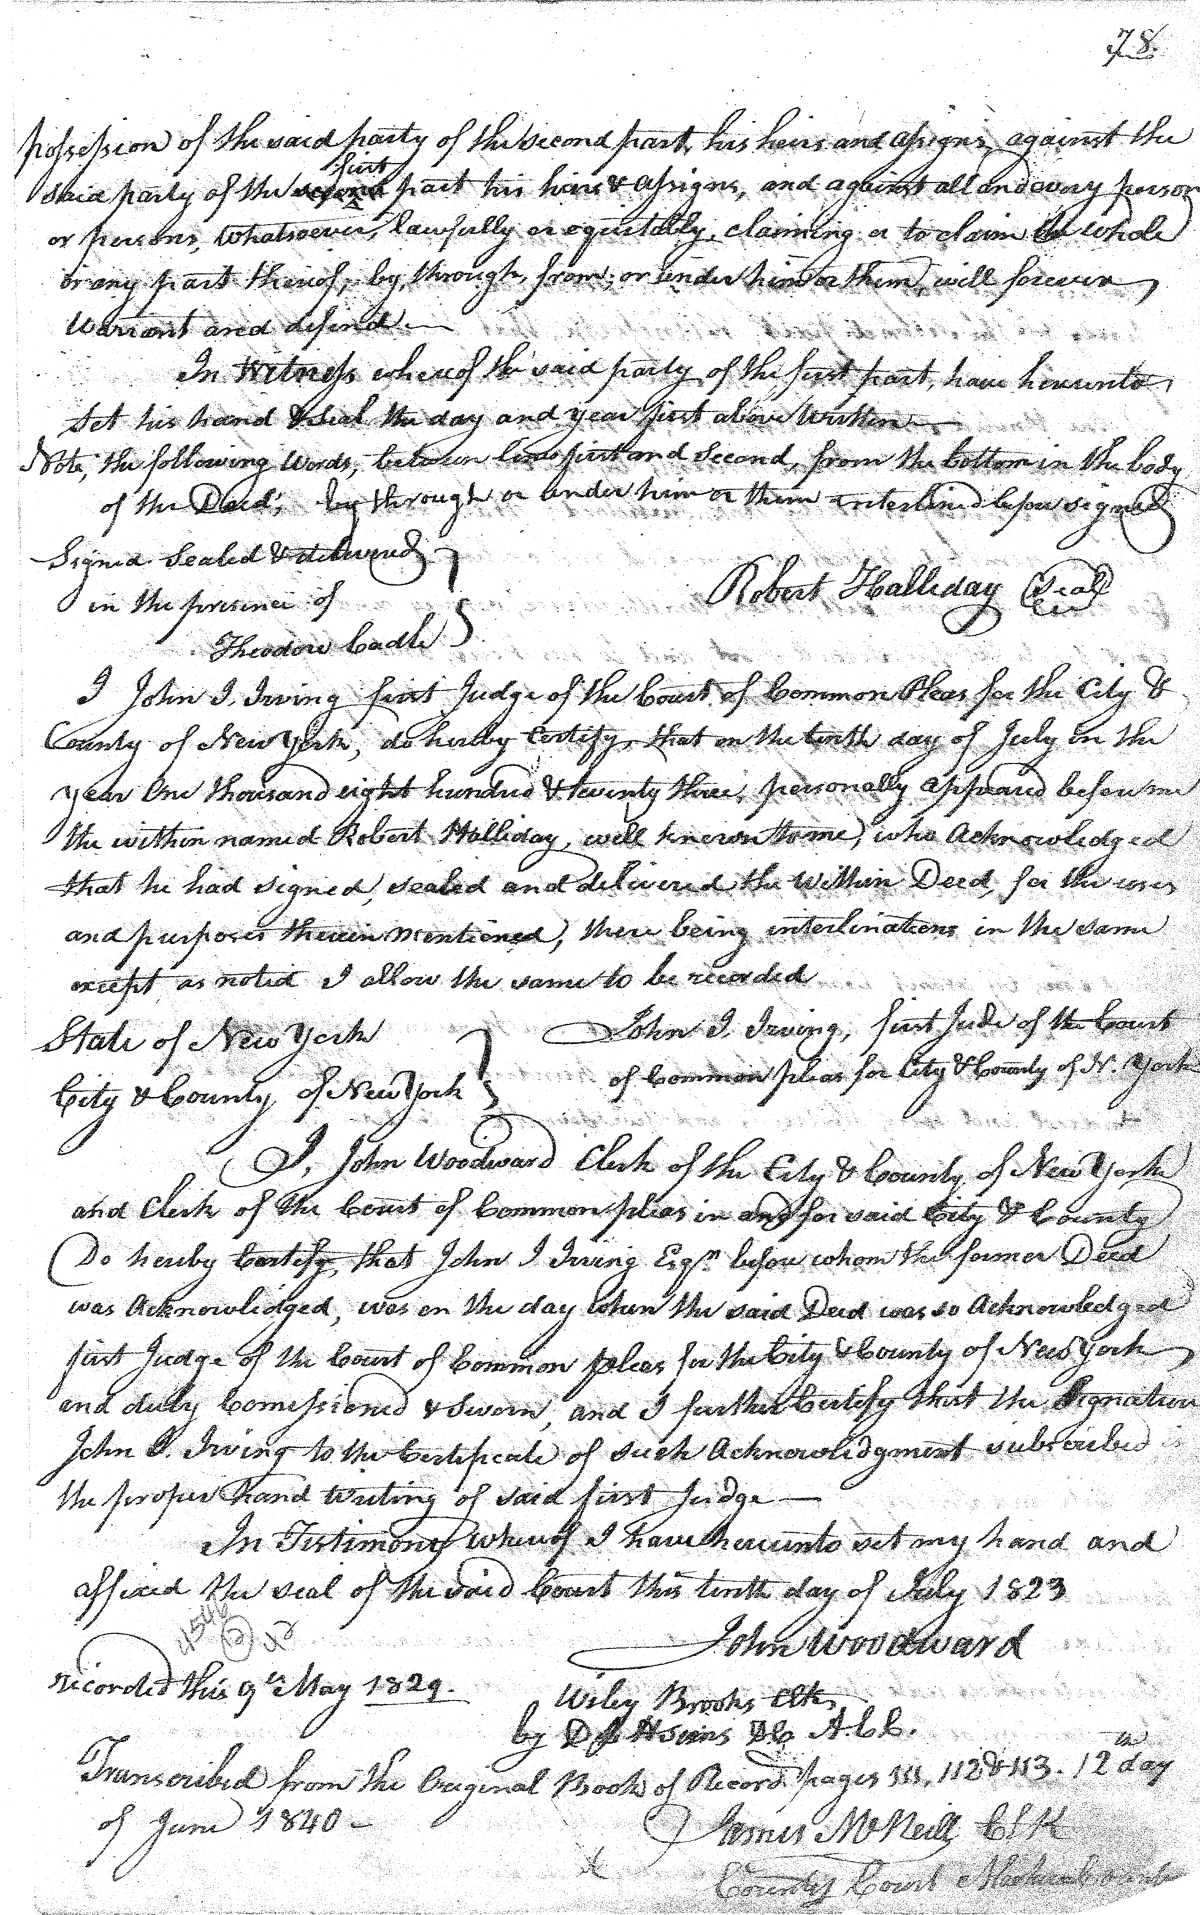 78.
possession of the said party of the second part, his heirs and assigns, against the
first
said party of the part his heirs & assigns, and against all and every person
or persons, whatsoever, lawfully or equitably, claiming or to claim the whole
or any part thereof, by, through, from, or under him or them, will forever
Warrant and defend.—
In Witness whereof the said party of the first part, have hereunto
Set his hand & Seal the day and year first above Written—
Note, the following Words, between lines first and Second, from the bottom in the body
of the Deed, by through or under him or them interlined before signed
Signed Sealed & delivered
in the presence of
Robert Halliday (Seal)
Theodore Cadle
I John I. Irving first Judge of the Court of Common Pleas for the City &
County of New York, do hereby Certify, that on the tenth day of July in the
year One thousand eight hundred & twenty three, personally appeared before me
the within named Robert Halliday, well known to me, who Acknowledged
that he had signed, sealed and delivered the Within Deed, for the uses
and purposes therein mentioned, there being interlinations in the same
except as noted I allow the same to be recorded
State of New York
City & County of New York
John I. Irving, first Jude of the Court
of Common pleas for City & County of N. York
I, John Woodward Clerk of the City & County of New York
and Clerk of the Court of Common pleas in and for said City & County
Do hereby Certify, that John I Irving Esqr. before whom the former Deed
was Acknowledged, was on the day when the said Deed was so Acknowledged
first Judge of the Court of Common pleas for the City & County of New York
and duly Comissioned & Sworn, and I further Certify that the Signature
John I. Irving to the Certificate of such Acknowledgment subscribed
the proper hand Writing of said first Judge—
In Testimony whereof I have hereunto set my hand and
affixed the seal of the said Court this tenth day of July 1823
John Woodward
recorded this 9th May 1829.
Wiley Brooks Clk
by D
Transcribed from the Original Book of Record pages 111, 112 & 113. 12th day
of June 1840—
James McNeill Clk
County Court